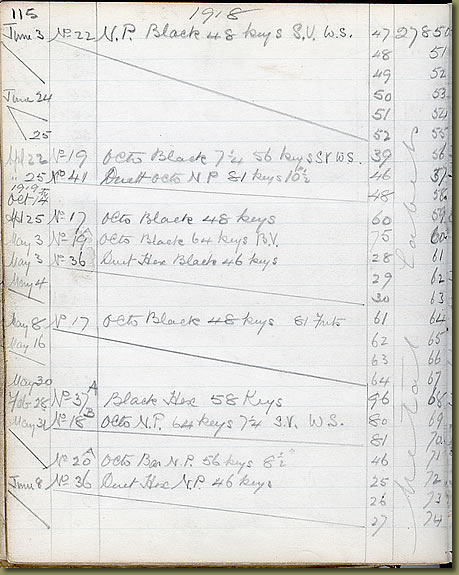 115 1918
June 3 No 22 N.P. Black 48 keys S.V. W.S. 47 27850
48 51
49 52
June 24 50 53
51 54
25 52 55
22 No 19 Octo Black 7¼ 56 keys SV WS. 39 56
" 25 No 41 Duett Octo N P 81 keys 10½" 46 57
1919
Oct 14 48 58
25 No 17 Octo Black 48 keys 60 59
May 3 No 19 Octo Black 64 keys B.V. 75 60
May 3 No 36 Duet Hex Black 46 keys 28 61
May 4 29 62
30 63
May 8 No 17 Octo Black 48 keys 81 61 64
May 16 62 65
63 66
May 30 64 67
Feb 28 No 37A Black Hex 58 Keys 96 68
May 31 No 18B Octo N.P. 64 keys 7¼ S.V. W.S. 80 69
81 70
No 20A Octo N.P. 56 keys 8½" 46 71
June 8 No 36 Duet Hex N.P. 46 keys 25 72
26 73
27 74